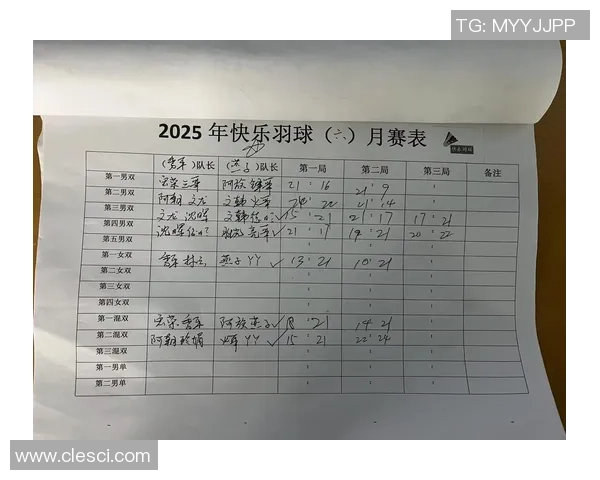 TG: MYYJJPP
2025 年快乐羽球（六）月赛表
快乐羽球
（秀军）队长 （燕子）队长 第一局 第二局 第三局 备注
第一男双 宏荣 三军 阿旋 21 : 16 21 : 9 :
第二男双 阿朝 文龙 文韩 : 22 21 : 14 :
第三男双 文龙 沈晖 文韩 15 : 21 21 : 17 17 : 21
第四男双 沈晖 21 : 17 19 : 21 20 : 22
第五男双 : : :
第一女双 燕子 YY ✓ 13 : 21 10 : 21 :
第二女双 : : :
第三女双 : : :
第四女双 : : :
第一混双 宏荣 阿旋 燕子 ✓ 18 : 21 19 : 21 :
第二混双 阿朝 YY ✓ 15 : 21 22 : 24 :
第三混双 : : :
第一男单 : : :
第二男单 : : :
www.clesci.com